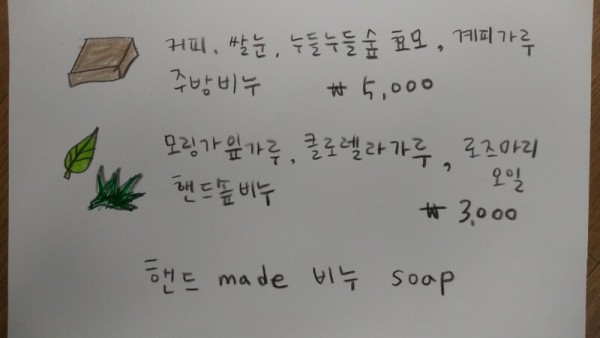 커피, 쌀눈, 누들누들숲 효모, 계피가루
주방비누 ₩ 5,000
모링가잎가루, 클로렐라가루, 로즈마리
오일
핸드숲비누
₩ 3,000
핸드 made 비누 soap